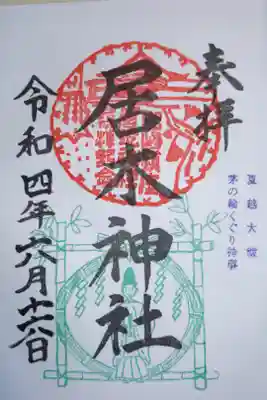 奉拝
夏越大祓
茅の輪くぐり神事
居木神社
令和四年六月十六日